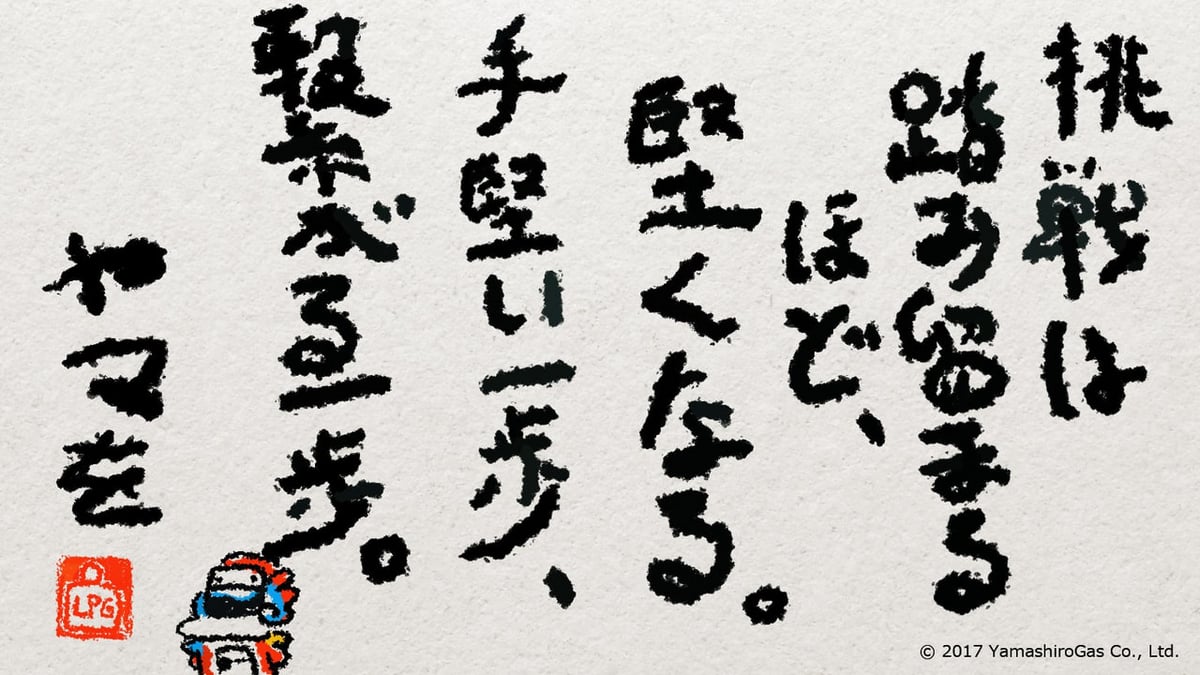 挑戦は
踏み留まる
ほど、
堅くなる。
手堅い一歩、
繋がる一歩。
LPG
© 2017 YamashiroGas Co., Ltd.